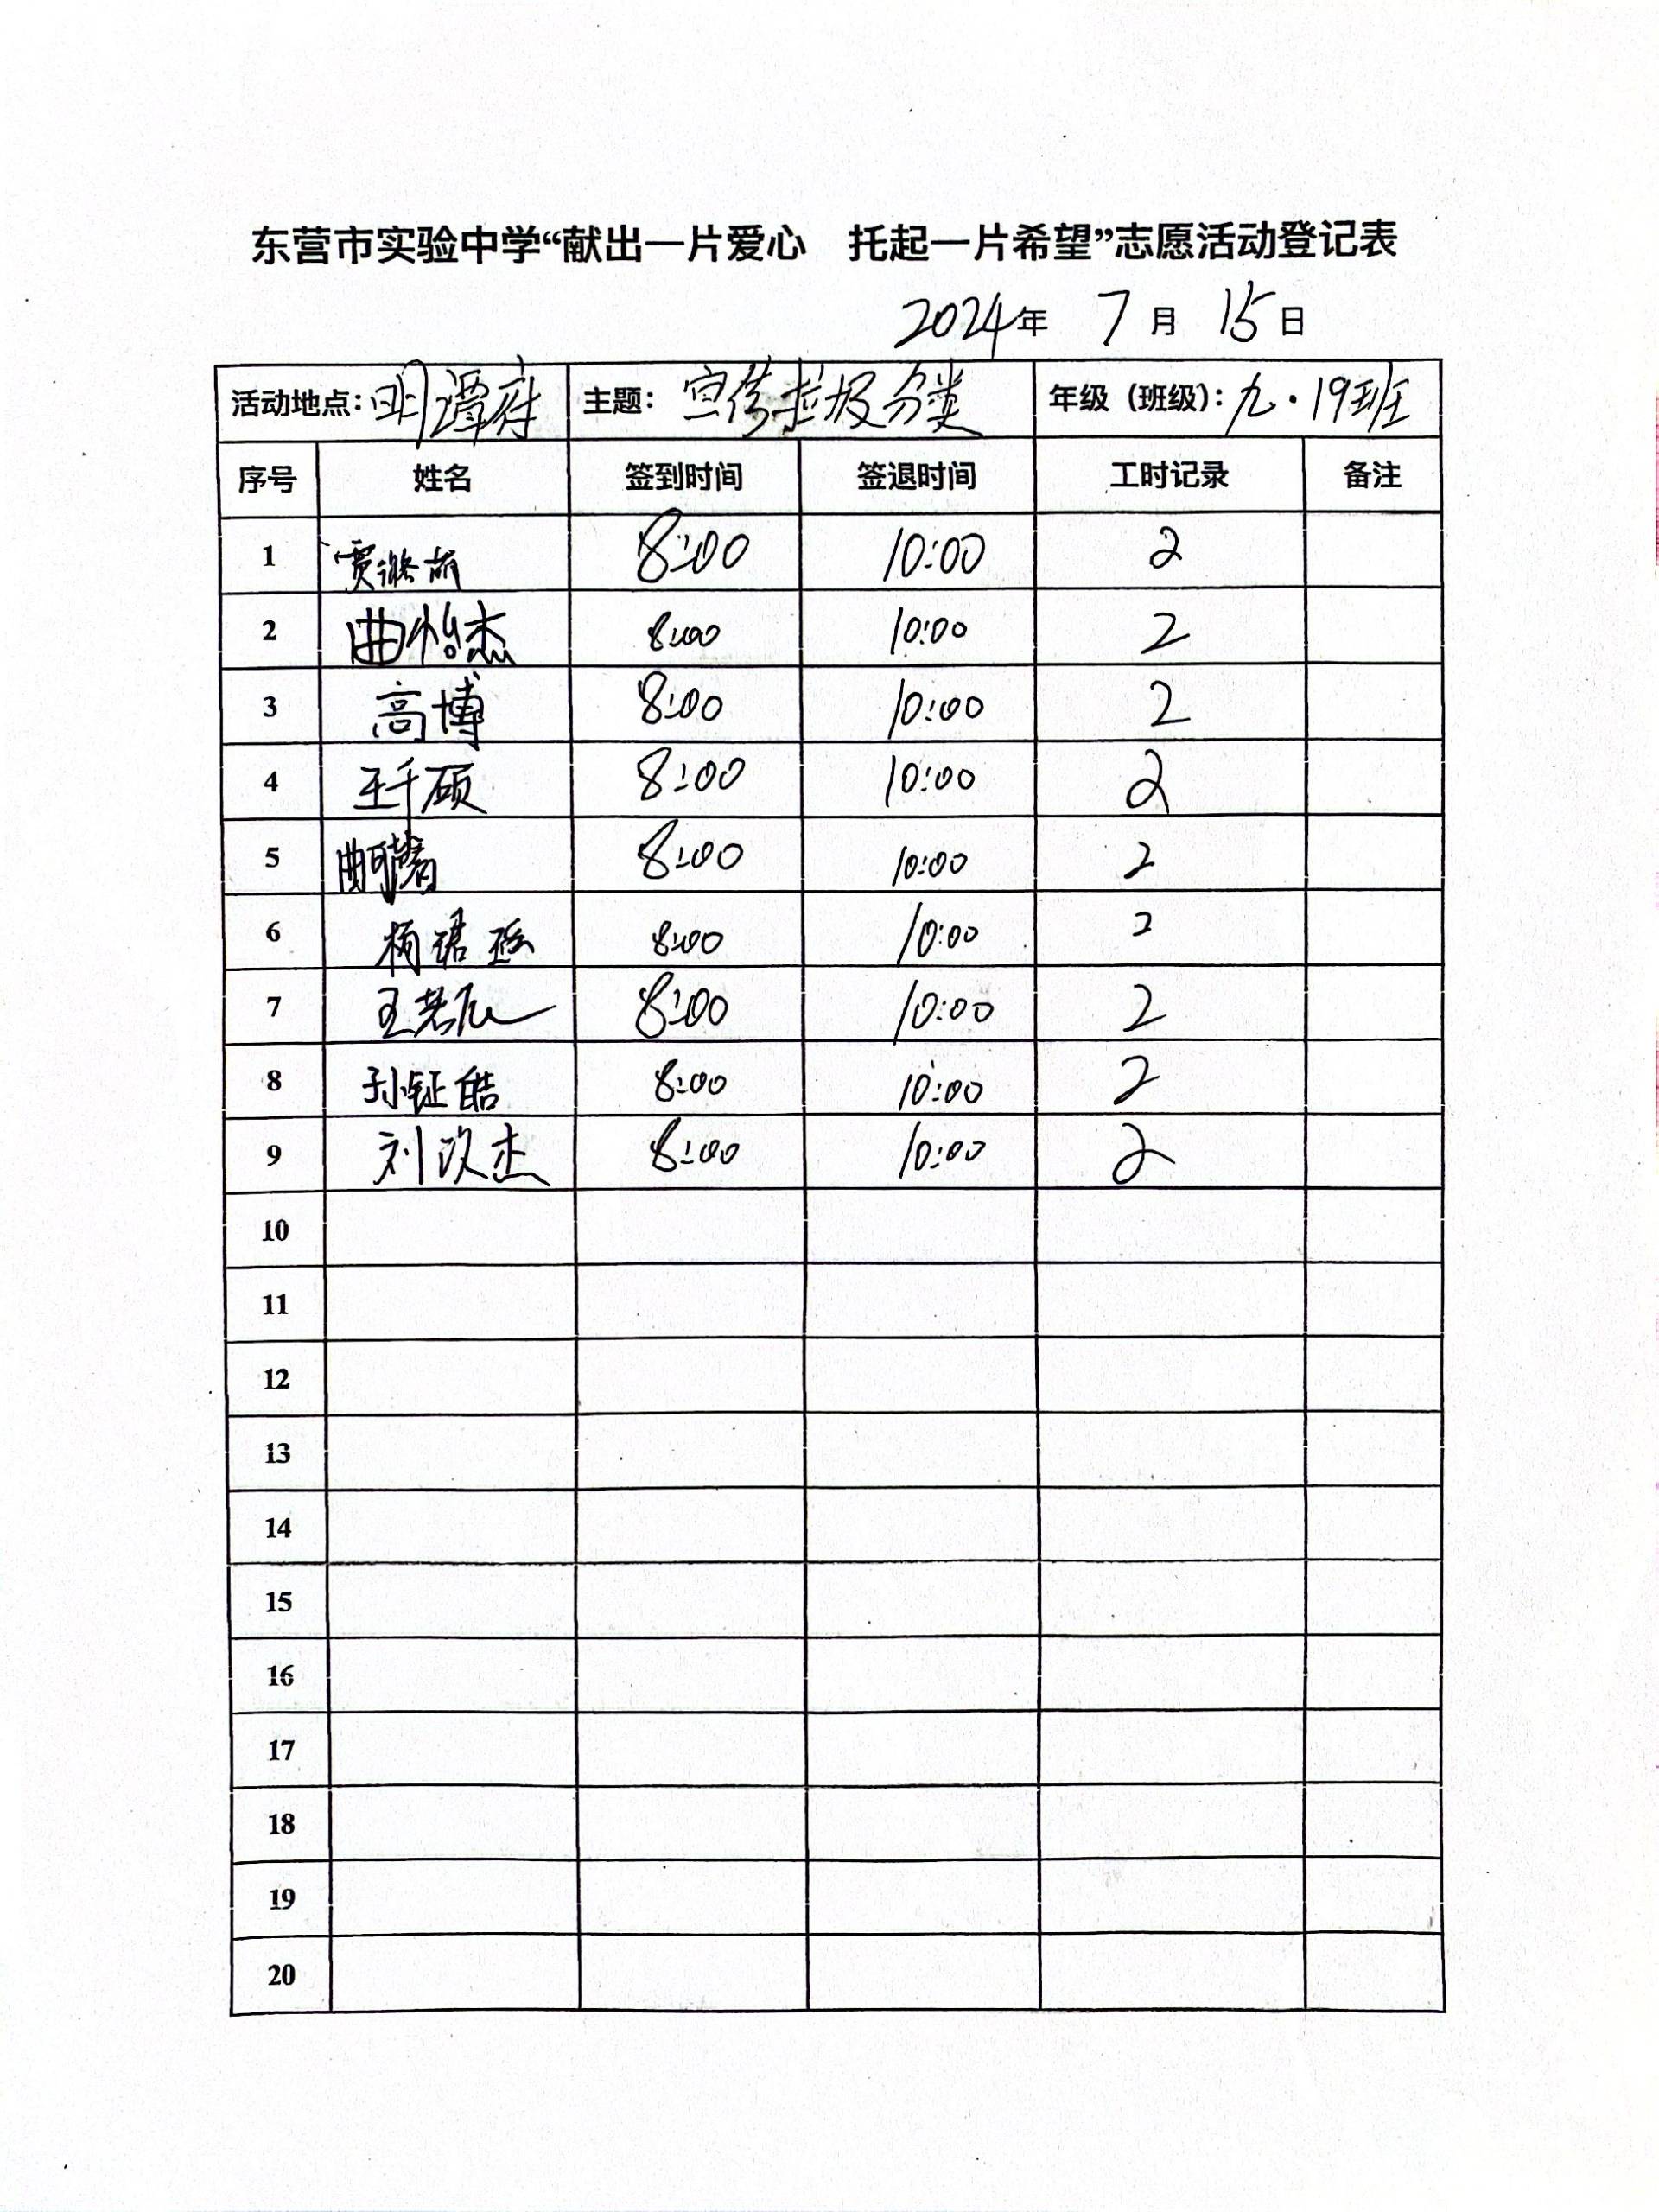 东营市实验中学“献出一片爱心 托起一片希望”志愿活动登记表
2024年 7月 15日
活动地点：明潭府 主题：宣传垃圾分类 年级（班级）：九·19班
序号 姓名 签到时间 签退时间 工时记录 备注
1 贾 8:00 10:00 2
2 曲怡杰 8:00 10:00 2
3 高博 8:00 10:00 2
4 王千硕 8:00 10:00 2
5 曲 8:00 10:00 2
6 杨珺 8:00 10:00 2
7 王 8:00 10:00 2
8 孙钲皓 8:00 10:00 2
9 刘政杰 8:00 10:00 2
10
11
12
13
14
15
16
17
18
19
20